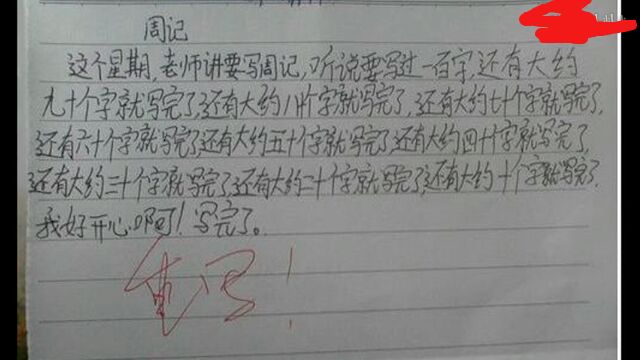 周记
这个星期,老师讲要写周记,听说要写过一百字,还有大约
九十个字就写完了,还有大约八十个字就写完了,还有大约七十个字就写完了,
还有六十个字就写完了还有大约五十个字就写完了还有大约四十个字就写完了,
还有大约三十个字就写完了,还有大约二十个字就写完了,还有大约十个字就写完了,
我好开心啊!写完了。
重写!